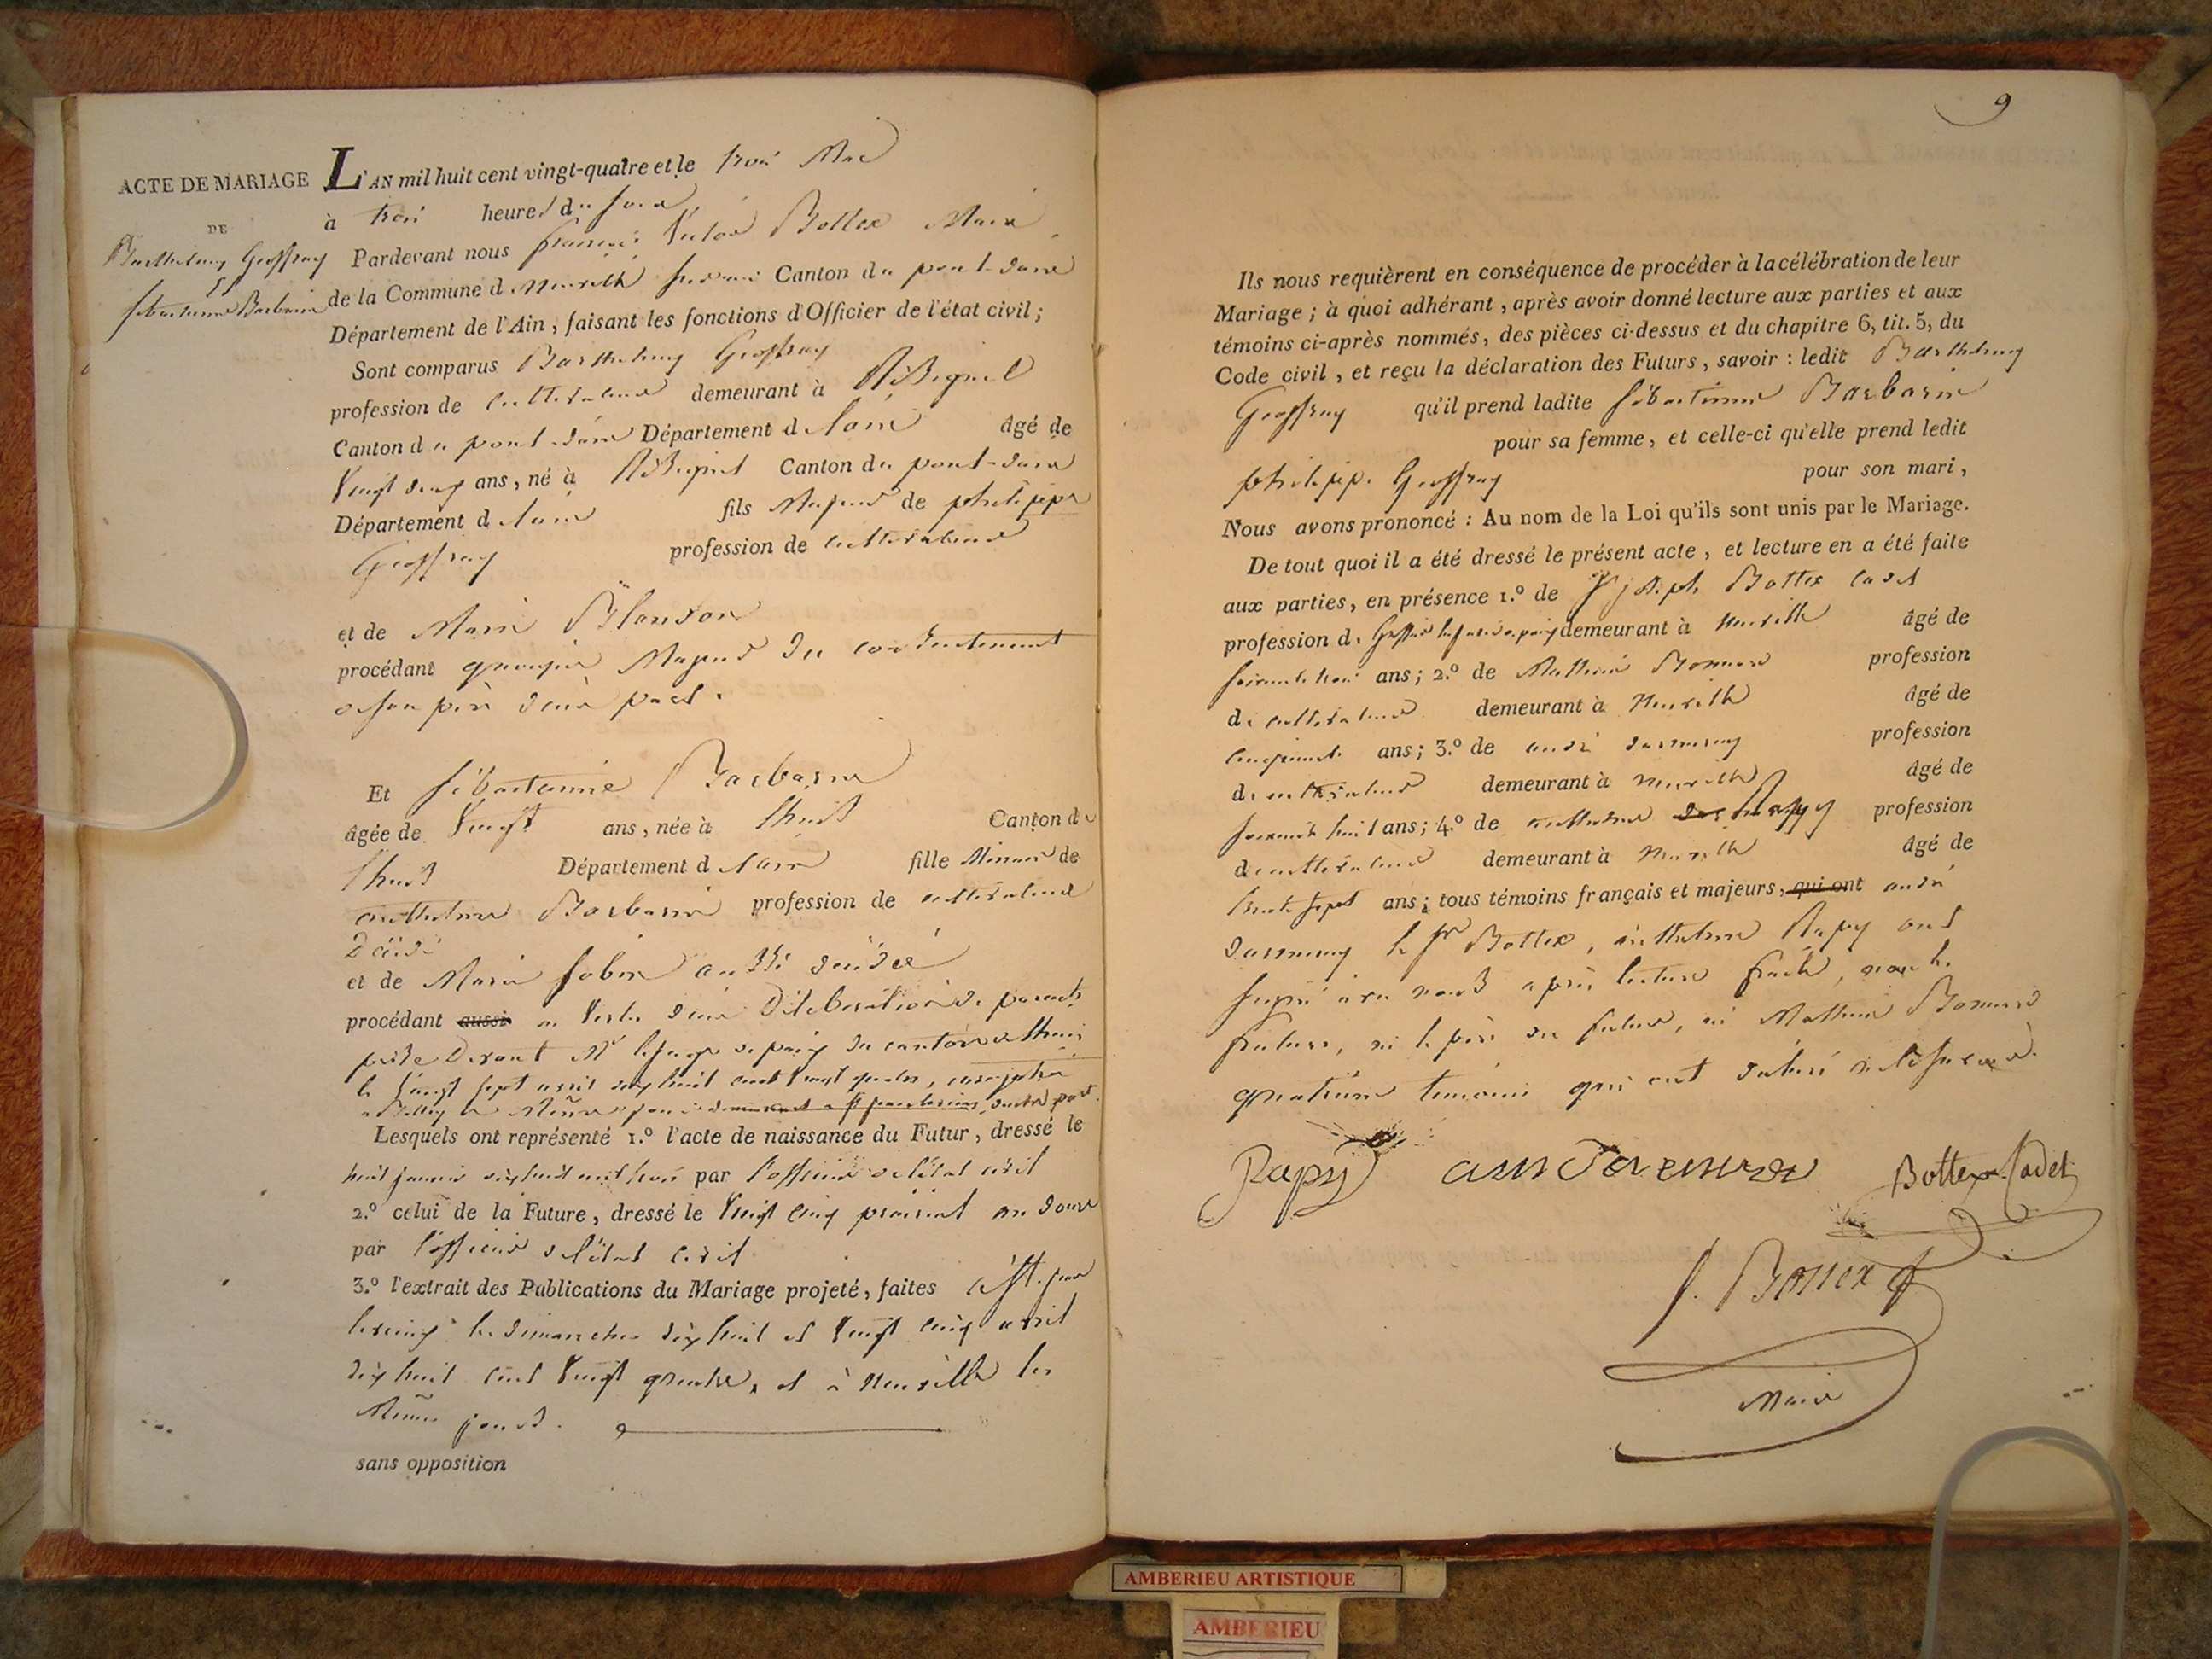 ACTE DE MARIAGE
DE
Barthelemy Geoffray
Et
sébastienne Barbarin
L'AN mil huit cent vingt-quatre et le trois Mai
à trois heures du soir
Pardevant nous françois Victor Bottex Maire
de la Commune d Neuville sur ain Canton du pont-dain
Département de l'Ain, faisant les fonctions d'Officier de l'état civil;
Sont comparus Barthelemy Geoffray
profession de cultivateur demeurant à
Canton du pont-dain Département d lain âgé de
Vingt deux ans, né à Canton du pont-dain
Département d lain fils Majeur de philippe
Geoffray profession de cultivateur
et de Marie Blandon
procédant quoique Majeur du consentement
de son père d'une part.
Et sébastienne Barbarin
âgée de Vingt ans, née à Canton de
Département d lain fille Mineure de
anthelme Barbarin profession de cultivateur
décédé
et de Marie aussi décédé
procédant aussi en Vertu d'une Déliberation de parents
prise Devant Mr le juge de paix du canton de
le Vingt sept avril dix huit cent Vingt quatre, enregistré
à Belley le Même jour d'autre part.
Lesquels ont représenté 1.º l'acte de naissance du Futur, dressé le
huit janvier dix huit cent trois par l'officier de l'état civil
2.º celui de la Future, dressé le Vingt cinq prairial an douze
par l'officier de l'état civil
3.º l'extrait des Publications du Mariage projeté, faites
les dimanches dix huit et Vingt cinq avril
dix huit cent Vingt quatre, et à Neuville les
Mêmes jours.
sans opposition
9
Ils nous requièrent en conséquence de procéder à la célébration de leur
Mariage; à quoi adhérant, après avoir donné lecture aux parties et aux
témoins ci-après nommés, des pièces ci-dessus et du chapitre 6, tit. 5, du
Code civil, et reçu la déclaration des Futurs, savoir: ledit Barthelemy
Geoffray qu'il prend ladite sébastienne Barbarin
pour sa femme, et celle-ci qu'elle prend ledit
philippe Geoffray pour son mari,
Nous avons prononcé: Au nom de la Loi qu'ils sont unis par le Mariage.
De tout quoi il a été dressé le présent acte, et lecture en a été faite
aux parties, en présence 1.º de joseph Bottex cadet
profession de Greffier de paix demeurant à Neuville âgé de
soixante trois ans; 2.º de Mathieu Bonnard profession
de cultivateur demeurant à Neuville âgé de
cinquante ans; 3.º de andré profession
de cultivateur demeurant à Neuville âgé de
soixante huit ans; 4.º de anthelme Rapy profession
de cultivateur demeurant à Neuville âgé de
trente sept ans; tous témoins français et majeurs, qui ont andré
le sr Bottex, anthelme Rapy ont
signé avec nous après lecture faite, non les
futurs, ni le père du futur, ni Mathieu Bonnard
quatrième temoin qui ont déclaré ne le savoir.
Rapy
Bottex Cadet
Bottex
Maire
AMBERIEU ARTISTIQUE
AMBERIEU